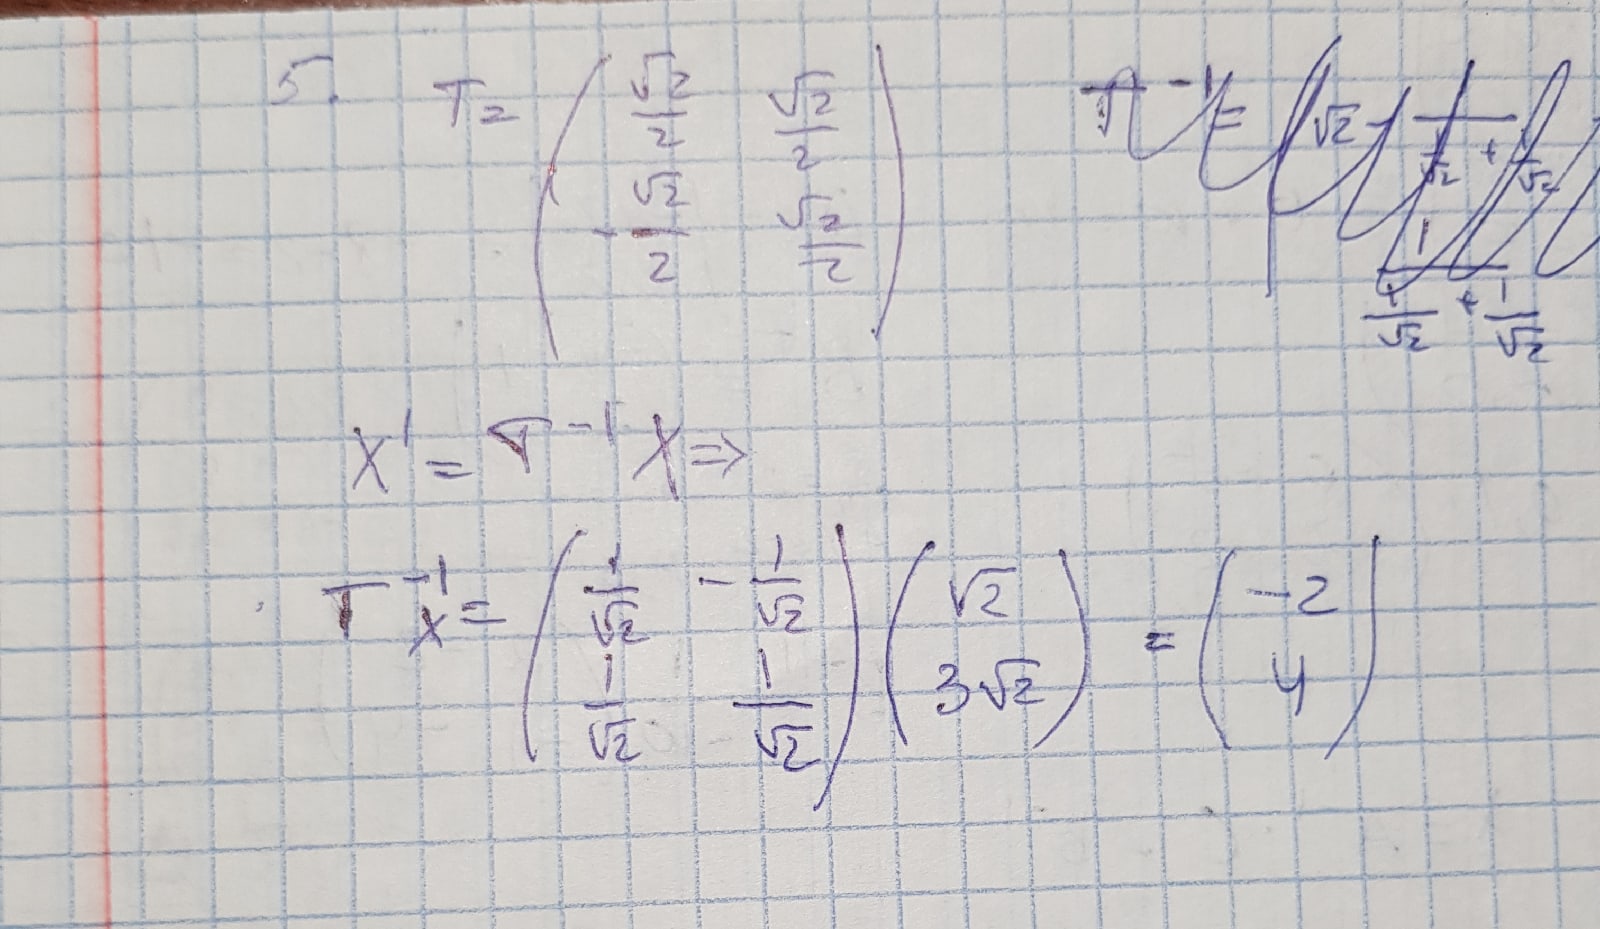 5. T = ( √2/2 √2/2
-√2/2 √2/2 )
X' = T⁻¹ X ⇒
T⁻¹x = ( 1/√2 -1/√2 ) ( √2 ) = ( -2 )
( 1/√2 1/√2 ) ( 3√2 ) ( 4 )